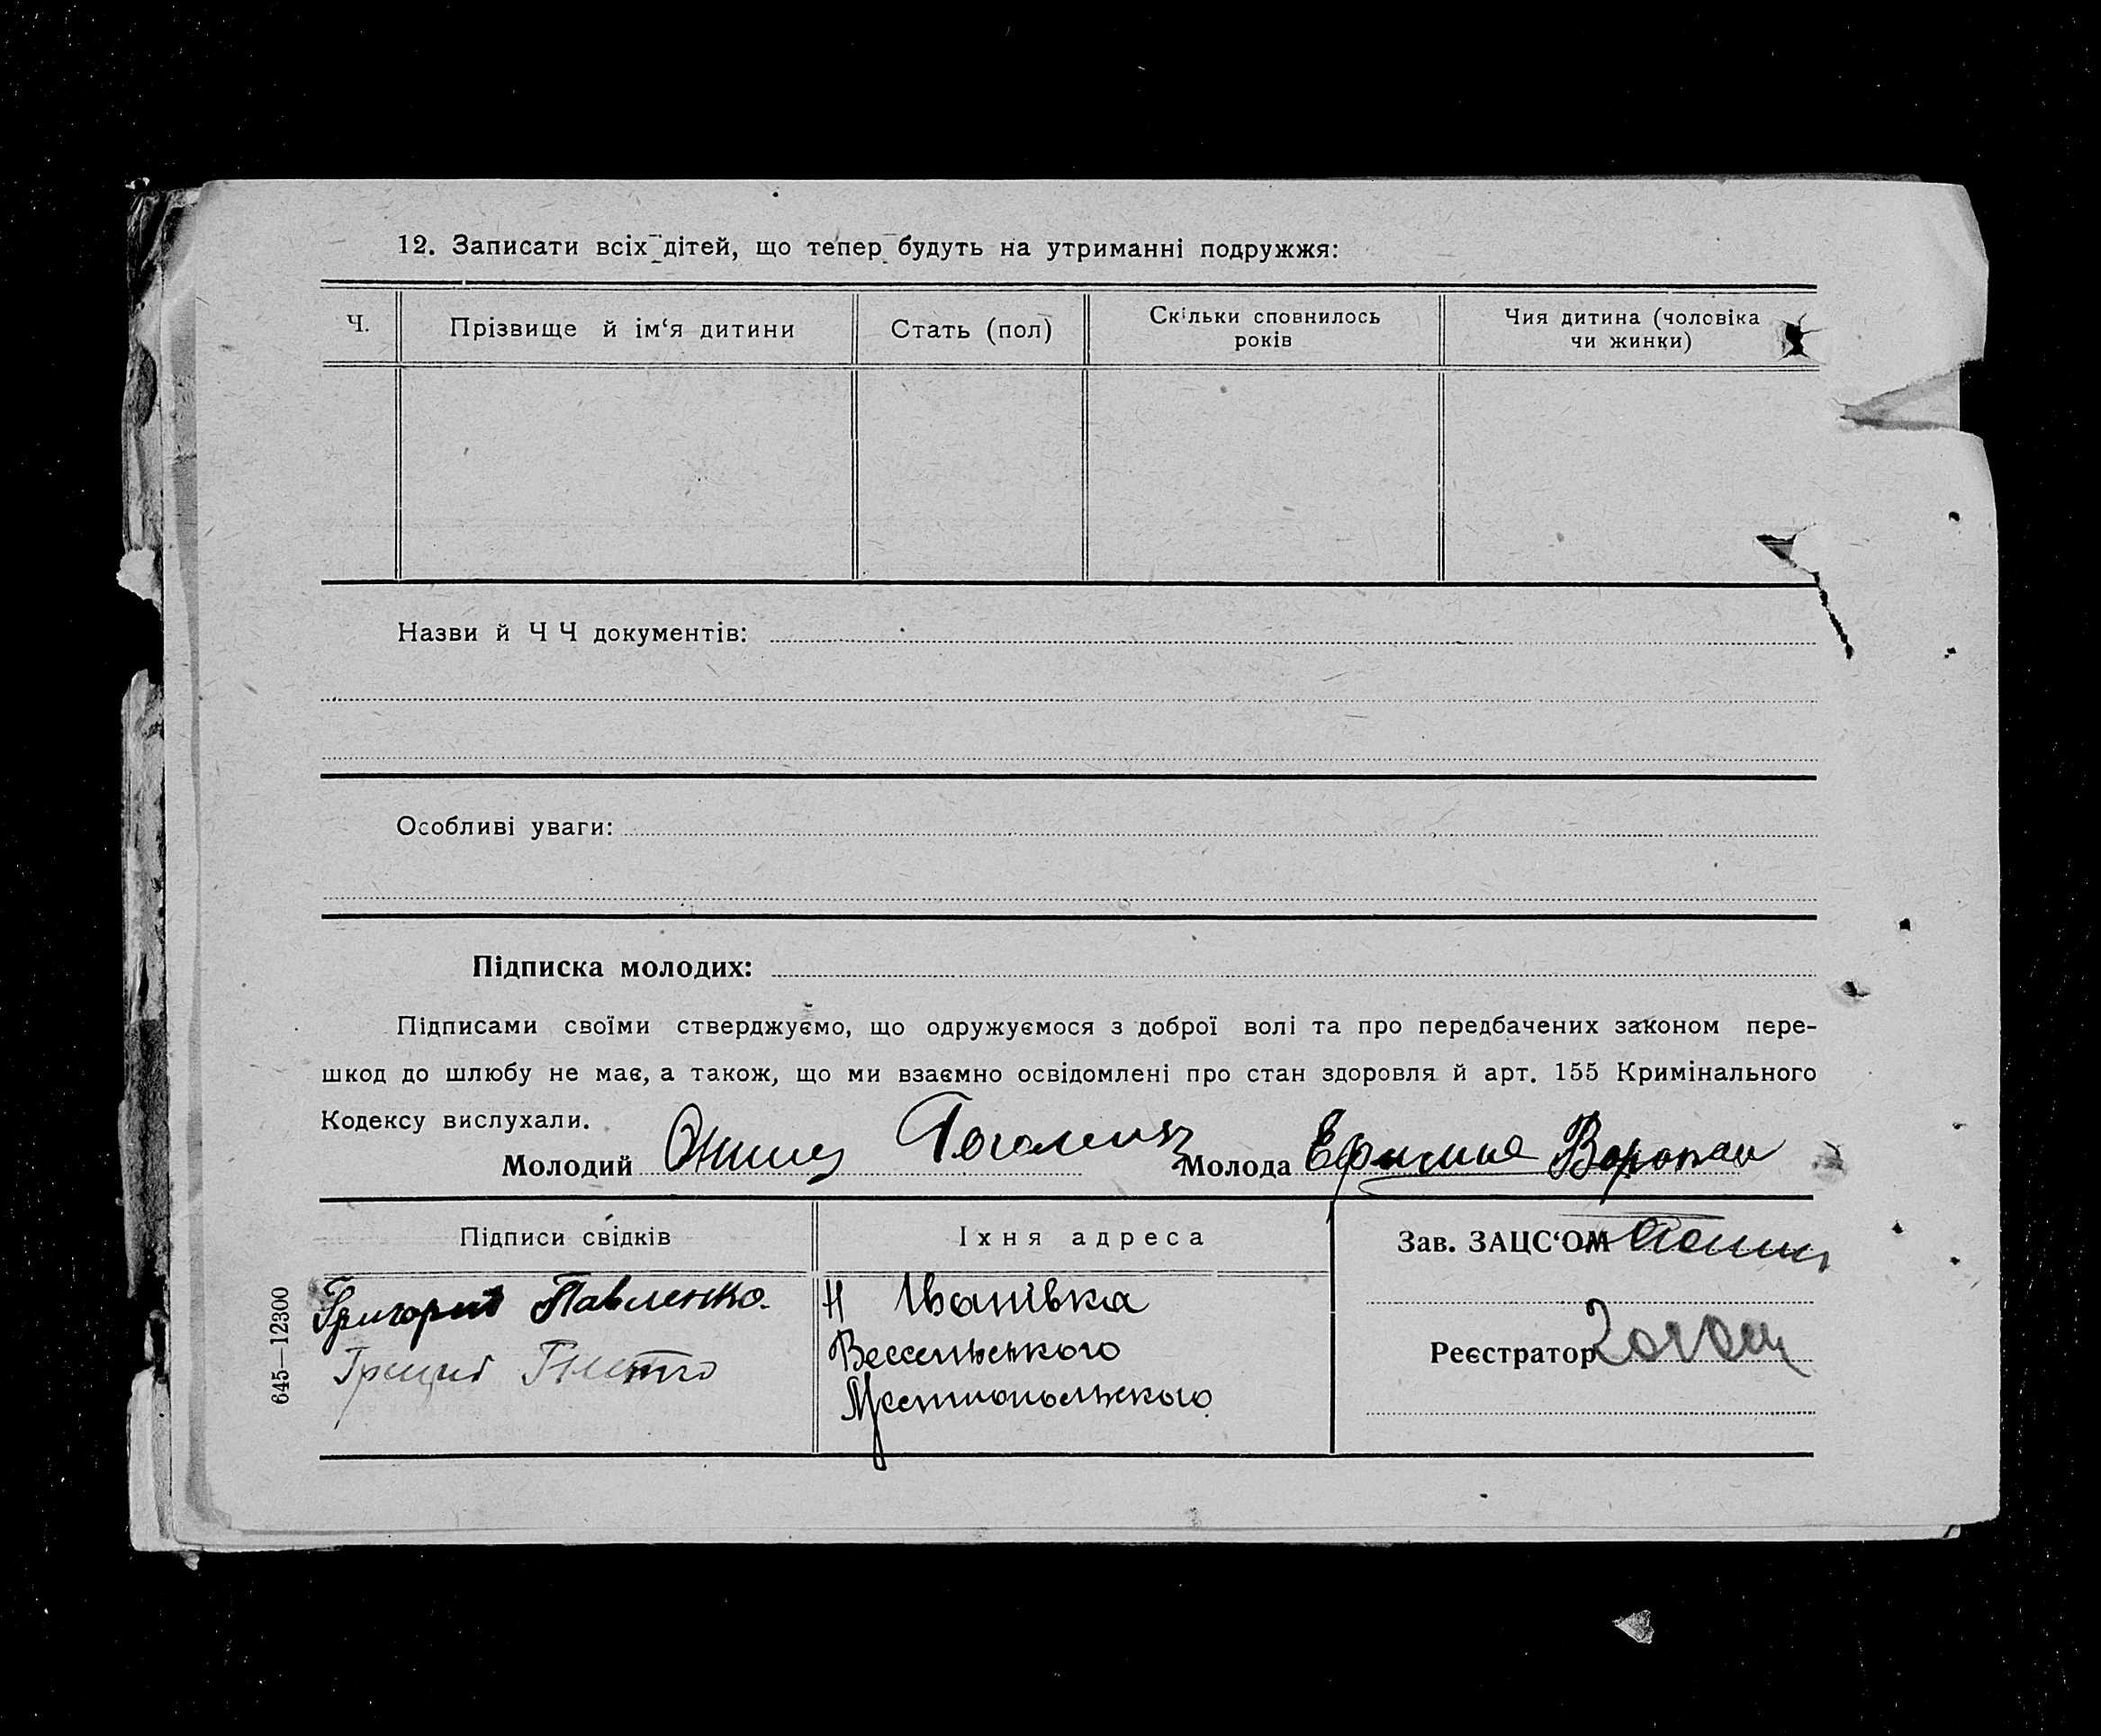 12. Записати всіх дітей, що тепер будуть на утриманні подружжя:
Ч.
Прізвище й ім‘я дитини
Стать (пол)
Скільки сповнилось
років
Чия дитина (чоловіка
чи жинки)
Назви й Ч Ч документів:
Особливі уваги:
Підписка молодих:
Підписами своїми стверджуємо, що одружуємося з доброї волі та про передбачених законом пере-
шкод до шлюбу не має, а також, що ми взаємно освідомлені про стан здоровля й арт. 155 Кримінального
Кодексу вислухали.
Молодий
Молода Ефимия Воропай
Підписи свідків
Григорий Павленко.
Їхня адреса
Н Іванівка
Зав. ЗАЦС‘ОМ
Реєстратор
645—12300